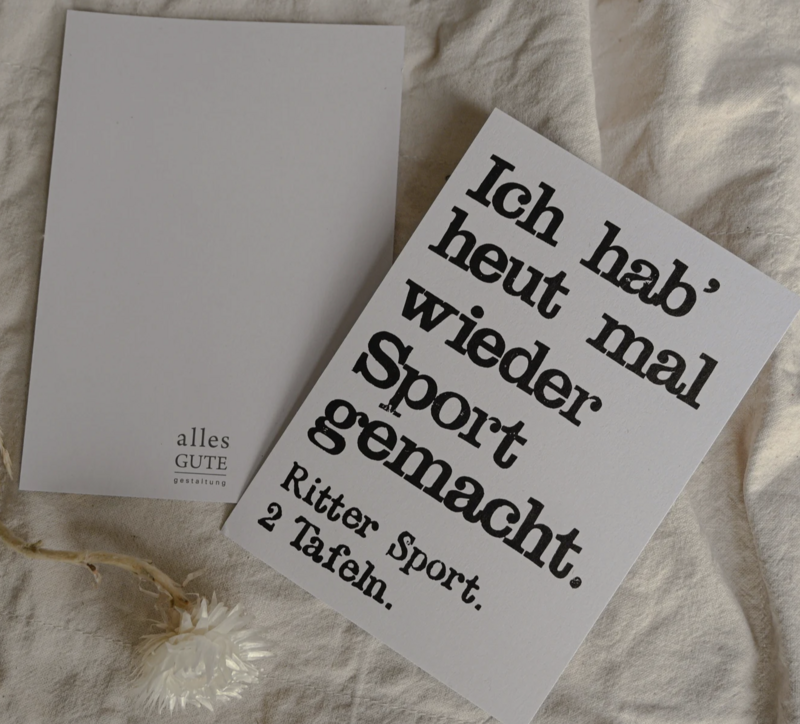 alles
GUTE
gestaltung
Ich hab’
heut mal
wieder
Sport
gemacht.
Ritter Sport.
2 Tafeln.